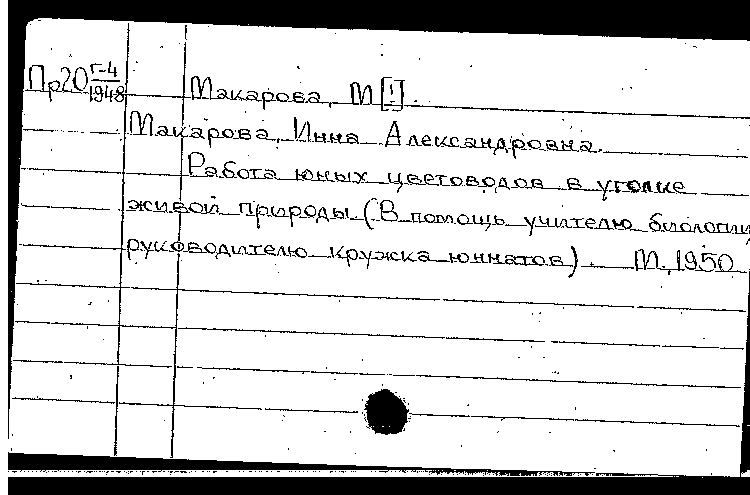 Пр20 Г-4/1948 Макарова, М[!].
Макарова, Инна Александровна.
Работа юных цветоводов в уголке
живой природы. (В помощь учителю биологии,
руководителю кружка юннатов). М., 1950